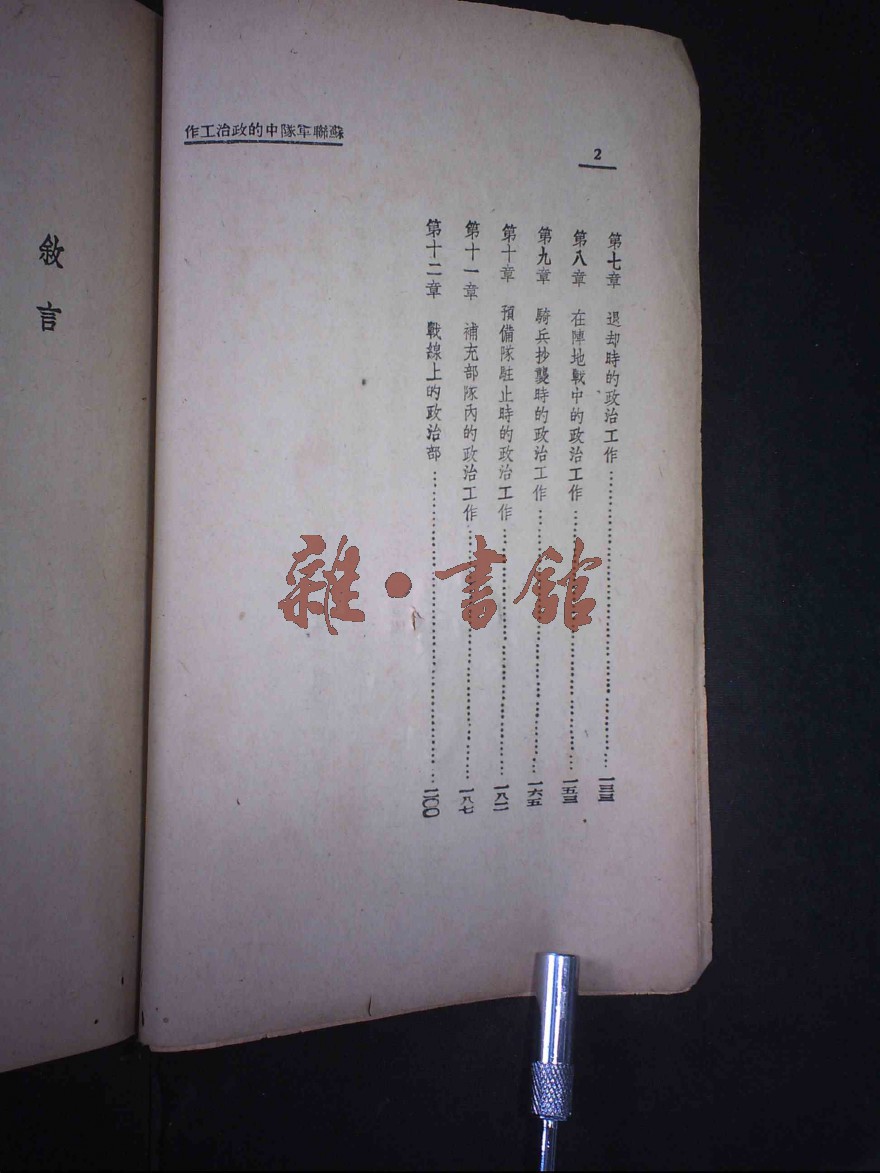 蘇聯軍隊中的政治工作
2
第七章 退却時的政治工作……一三三
第八章 在陣地戰中的政治工作……一五三
第九章 騎兵抄襲時的政治工作……一六五
第十章 預備隊駐止時的政治工作……一八二
第十一章 補充部隊內的政治工作……一八七
第十二章 戰線上的政治部……二〇〇
敘言
雜·書館